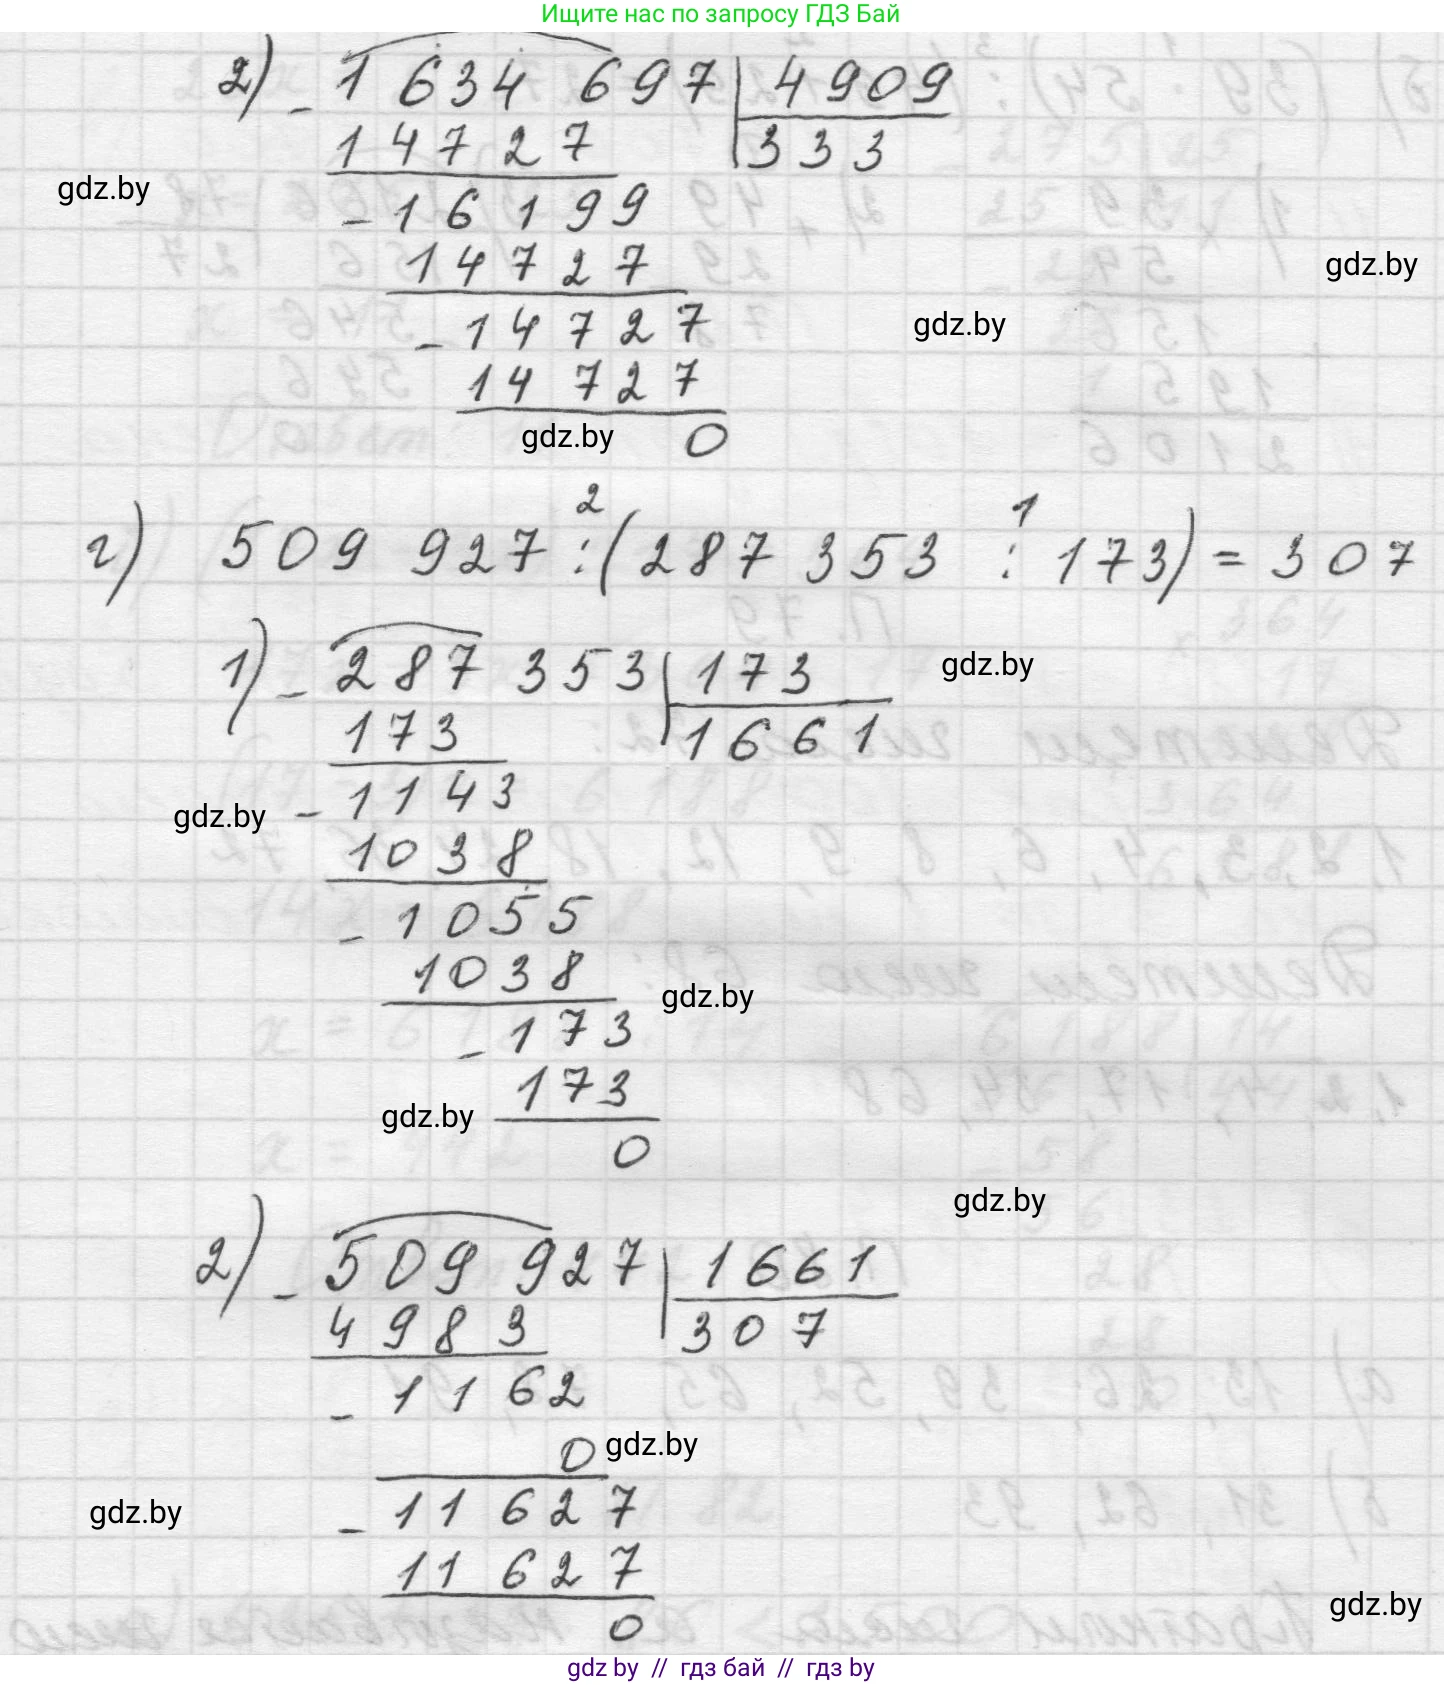 Ищите нас по запросу ГДЗ Бай
2) - 1 634 697 | 4909
14727 | 333
gdz.by
- 16199
14727
gdz.by
gdz.by
- 14727
14727
gdz.by
0
2 1
г) 509 927 : (287 353 : 173) = 307
1) - 287 353 | 173
gdz.by
173 | 1661
- 1143
gdz.by
1038
- 1055
1038
gdz.by
- 173
173
gdz.by
0
gdz.by
2) - 509 927 | 1661
4983 | 307
- 1162
0
gdz.by
- 11627
gdz.by
11627
gdz.by
0
gdz by // гдз бай // гдз by